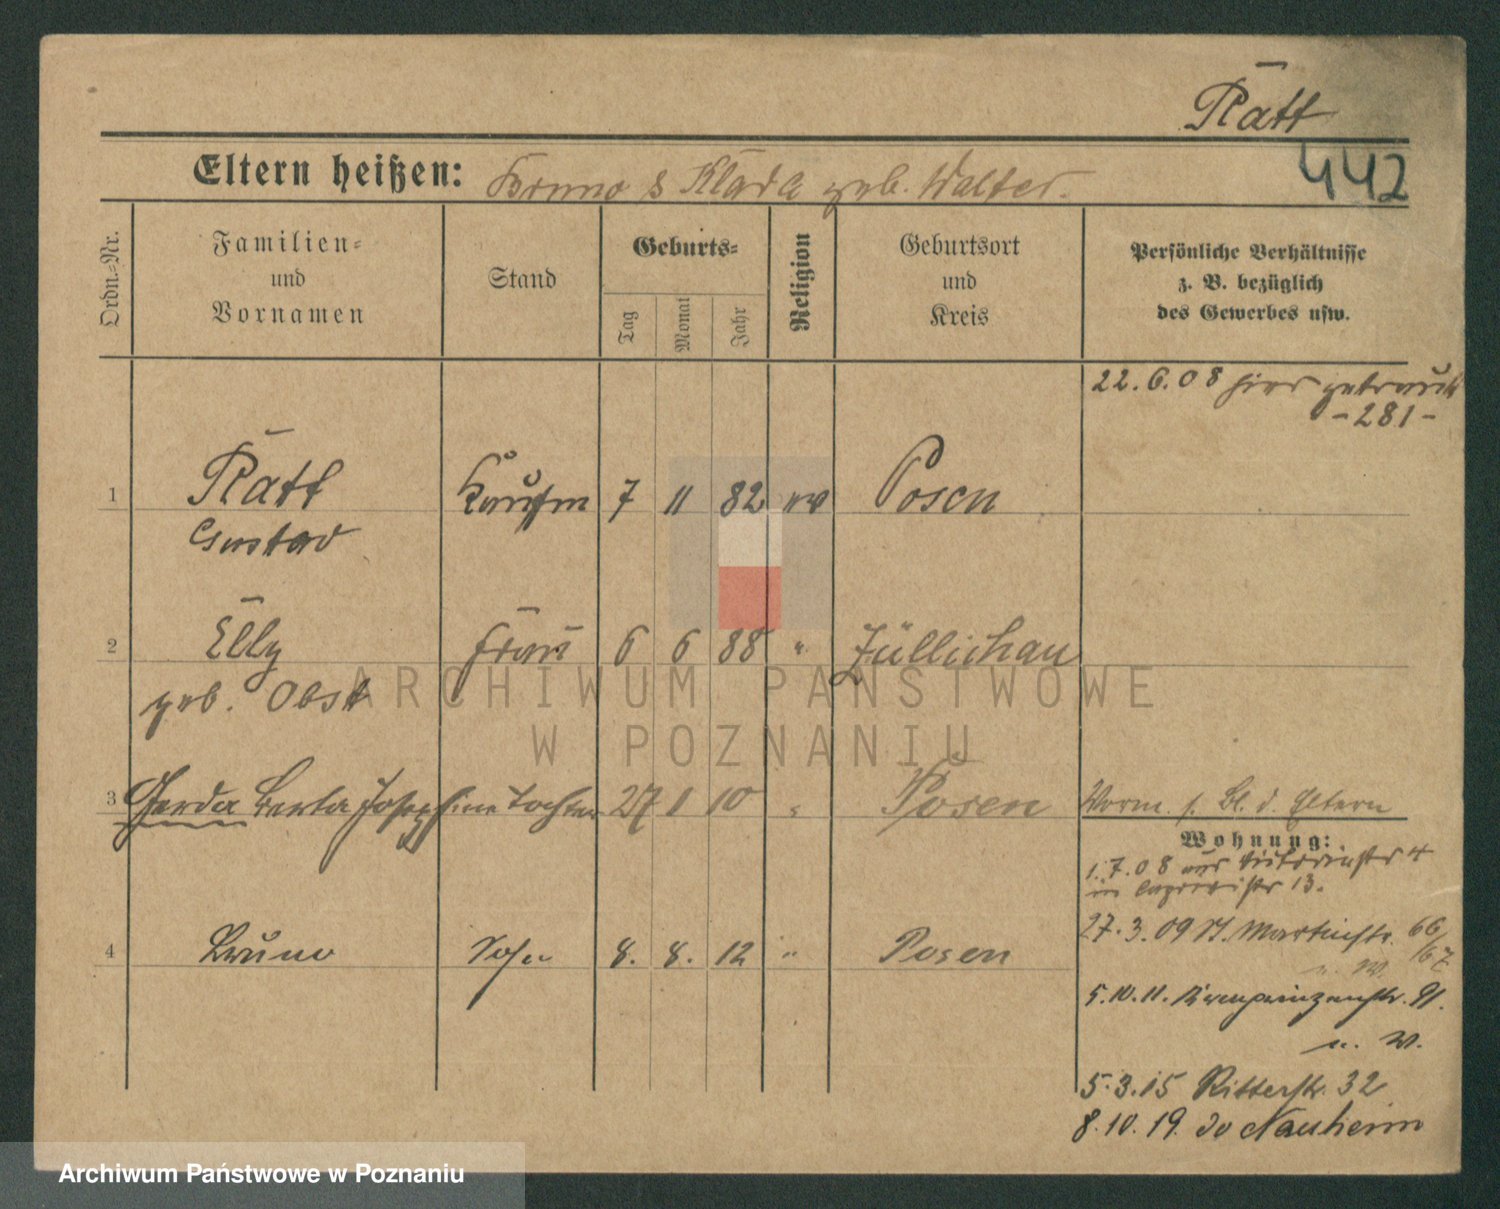 Rätt
Eltern heißen: Bruno & Klara geb. Walter.
442
Ordn.=Nr.
Familien=
und
Vornamen
Stand
Geburts=
Tag
Monat
Jahr
Religion
Geburtsort
und
Kreis
Persönliche Verhältnisse
z. B. bezüglich
des Gewerbes usw.
22.6.08 hier getraut
-281-
1 Rätt Kaufm 7 11 82 ev Posen
Gustav
2 Elly Frau 6 6 88 " Züllichau
geb. Obst
3 Gerda Berta Josephine Tochter 27 1 10 " Posen Verm. s. Bl. d. Eltern
Wohnung:
1.7.08 aus 4
in 13.
4 Bruno Sohn 8. 8. 12 " Posen
27.3.09 St. Martinstr. 66/67
u. W.
5.10.11. Kronprinzenstr. 91.
u. W.
5.3.15 Ritterstr. 32
8.10.19. do Nauheim
ARCHIWUM PAŃSTWOWE
W POZNANIU
Archiwum Państwowe w Poznaniu